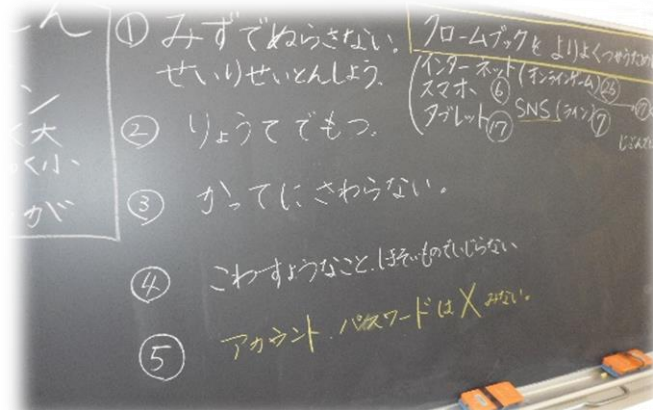 ん
ン
く大
く小
が
① みずでぬらさない。
せいりせいとんしよう。
② りょうてでもつ。
③ かってにさわらない。
④ こわすようなこと、ほそいものでいじらない
⑤ アカウント、パスワードは X みない。
クロームブックをよりよくつかうため
インターネット(オンラインゲーム)㉖
スマホ ⑥
タブレット ⑰ SNS(ライン) ⑦